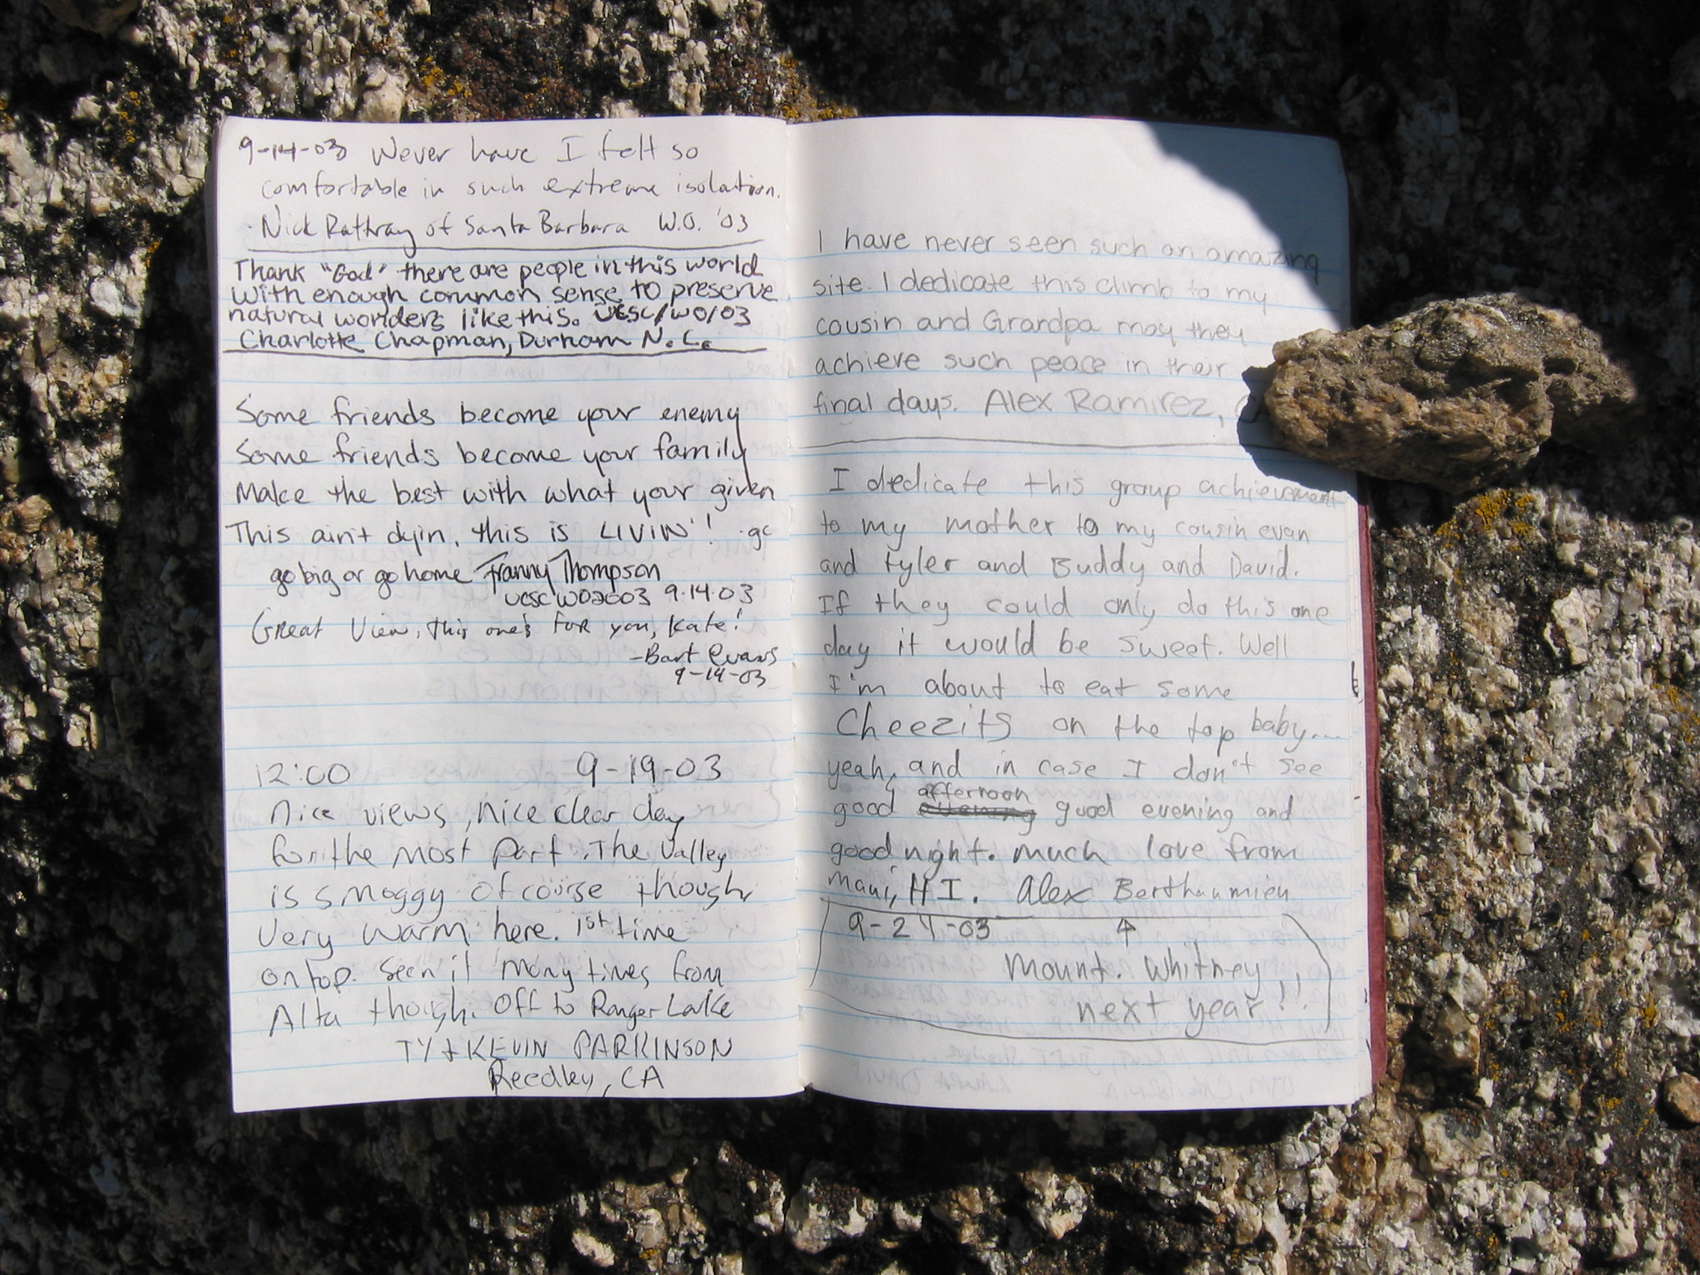 9-14-03 Never have I felt so
comfortable in such extreme isolation.
Nick Rathray of Santa Barbara W.O. '03
Thank "God" there are people in this world
with enough common sense to preserve
natural wonders like this. UCSC/WO/03
Charlotte Chapman, Durham N.C.
Some friends become your enemy
Some friends become your family
Make the best with what your given
This ain't dyin, this is LIVIN'! -gc
go big or go home Franny Thompson
UCSC WO2003 9.14.03
Great View, this one's for you, Kate!
-Bart Evans
9-14-03
12:00 9-19-03
Nice views, nice clear day
for the most part. The Valley
is smoggy of course though,
Very warm here. 1st time
on top. Seen it many times from
Alta though. Off to Ranger Lake
TY + KEVIN PARKINSON
Reedley, CA
I have never seen such an amazing
site. I dedicate this climb to my
cousin and Grandpa may they
achieve such peace in their
final days. Alex Ramirez,
I dedicate this group achievement
to my mother to my cousin evan
and tyler and Buddy and David.
If they could only do this one
day it would be sweet. Well
I'm about to eat some
Cheezits on the top baby...
yeah, and in case I don't see
good afternoon good evening and
good night. much love from
Maui, HI. Alex Berthaumieu
9-24-03
Mount. Whitney
next year!!